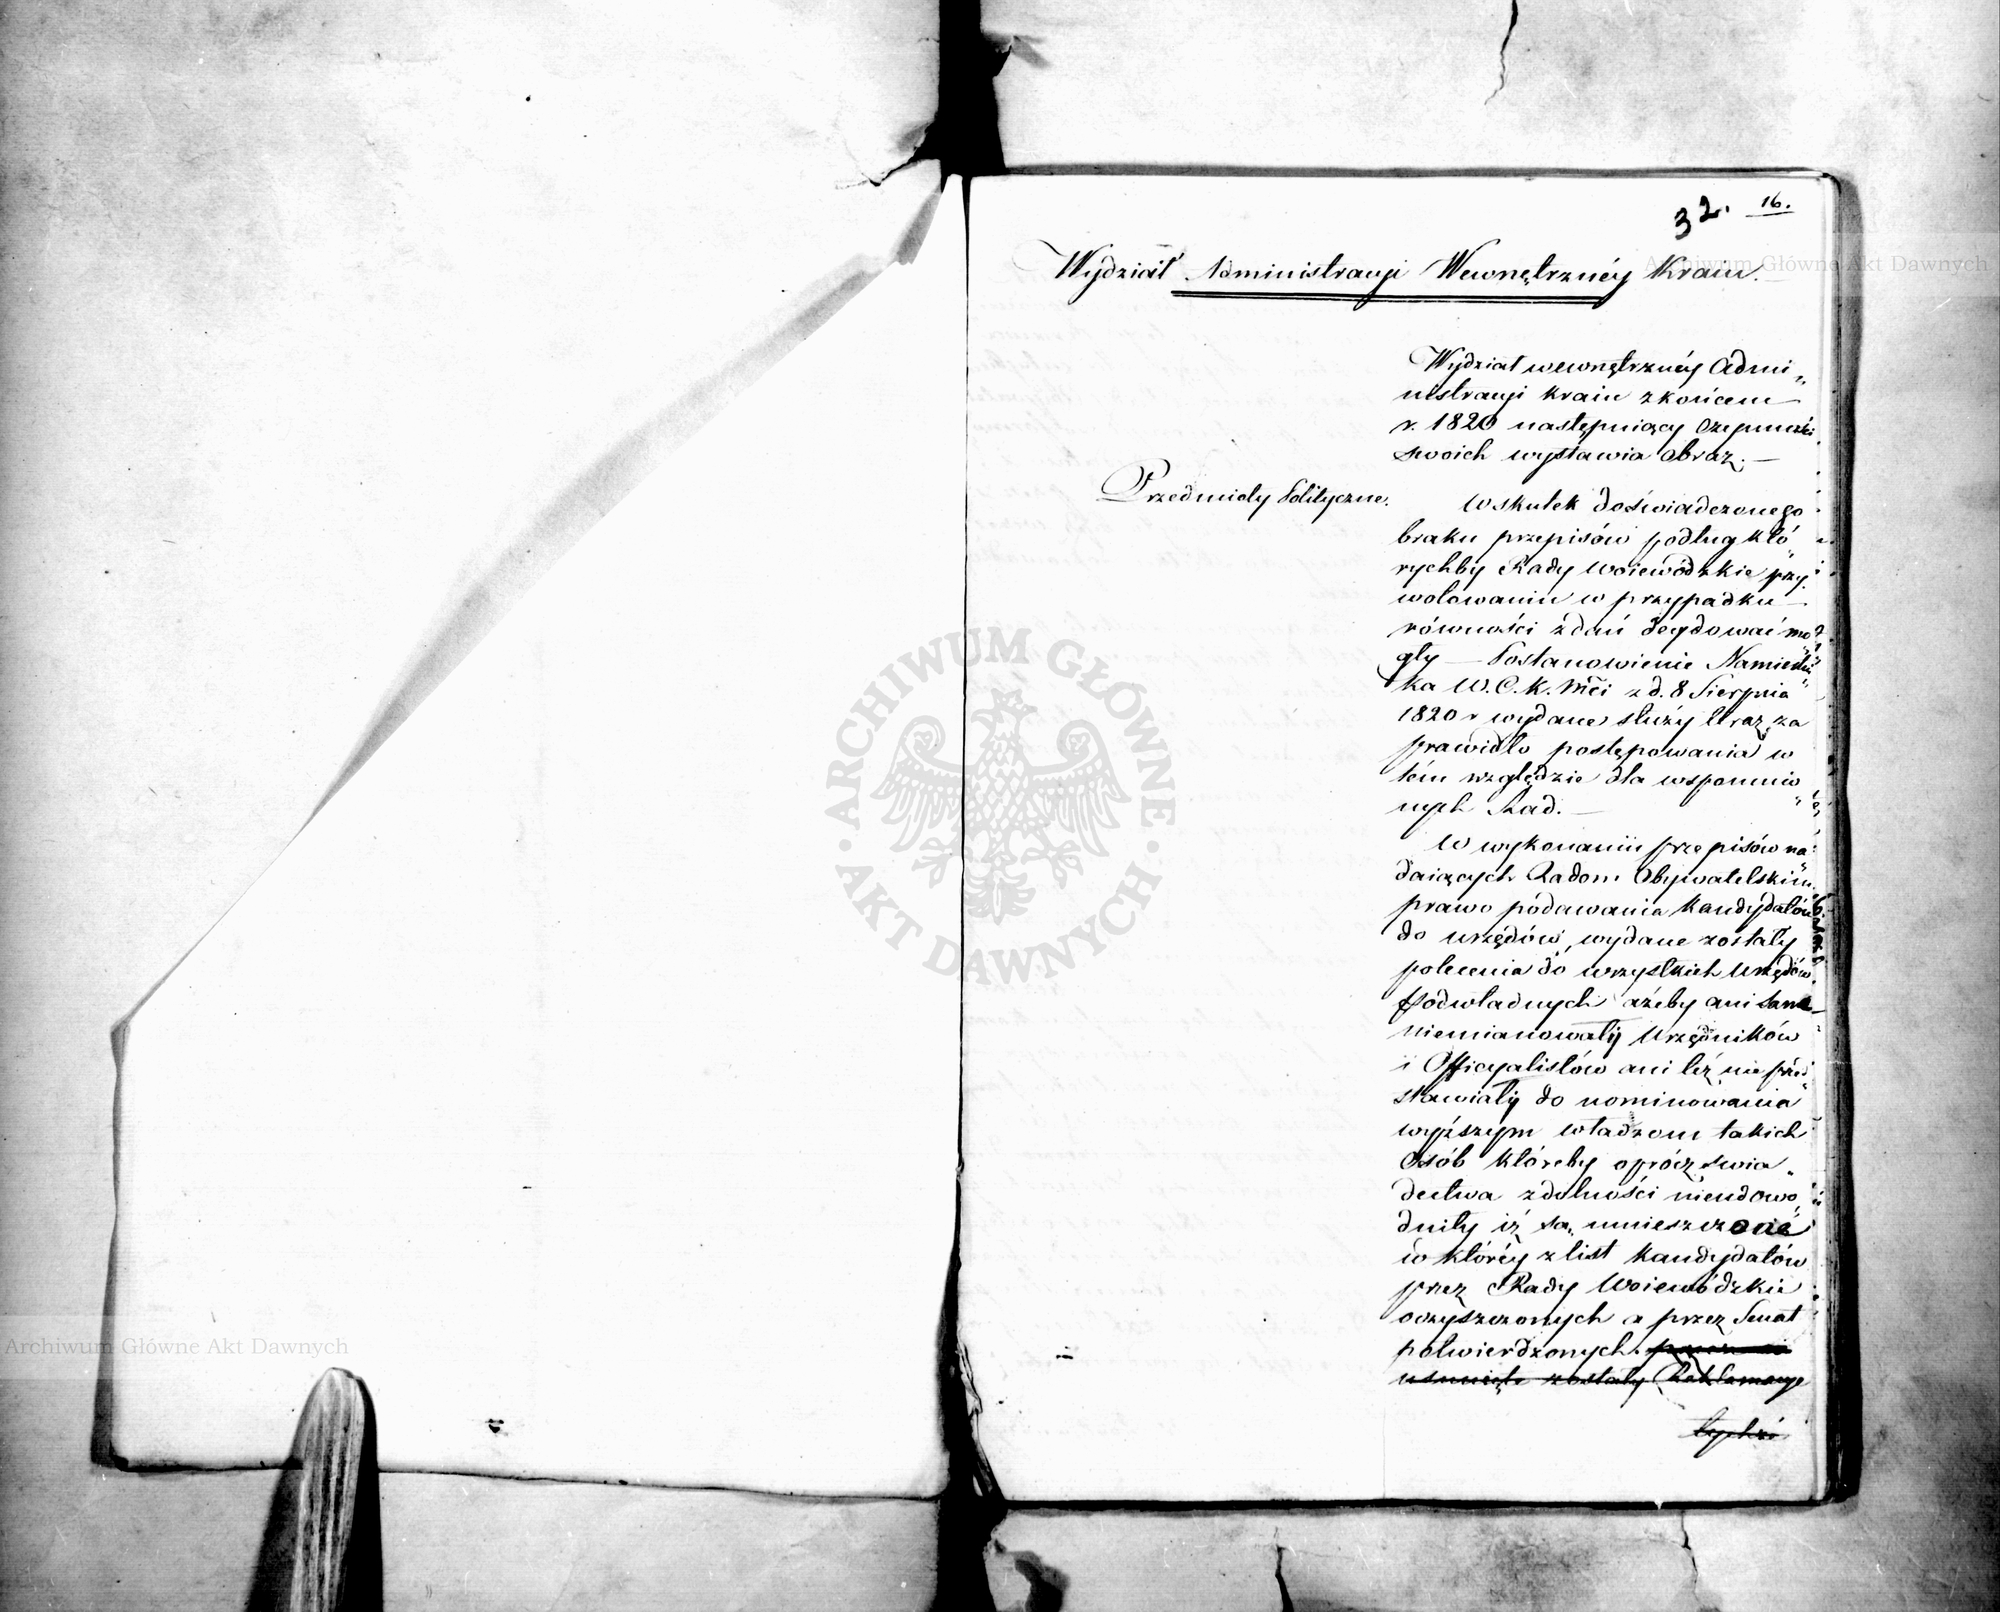 32. 16.
Wydział Administracyi Wewnętrznéy Kraiu.
Wydział wewnętrznéy Admi„
nistracyi kraiu z końcem
r. 1820 następuiący czynności
swoich wystawia obraz. —
Przedmioty Polityczne.
W skutek doświadczonego
braku przepisów podług któ„
rychby Rady Woiewódzkie przy
wotowaniu w przypadku
równości zdań decydować mo„
gły — Postanowienie Namiestni„
ka W. C. K. Mci z d. 8 Sierpnia
1820 r wydane służy teraz za
prawidło postępowania w
tém względzie dla wspomnio„
nych Rad. —
W wykonaniu przepisów na„
daiących Radom Obywatelskim
prawo podawania kandydatów
do urzędów, wydane zostały
polecenia do wszystkich Urzędów
podwładnych ażeby ani same
niemianowały Urzędników
i Officyalistów ani też nie przed„
stawiały do nominowania
wyższym władzom takich
osób któreby oprócz swia„
dectwa zdolności nieudowo„
dniły iż są umieszczoné
w któréy z list kandydatów
przez Rady Woiewódzkie
oczyszczonych a przez Senat
potwierdzonych.
usunięte zostały Reklamacye
ARCHIWUM GŁÓWNE
AKT DAWNYCH
Archiwum Główne Akt Dawnych
Archiwum Główne Akt Dawnych